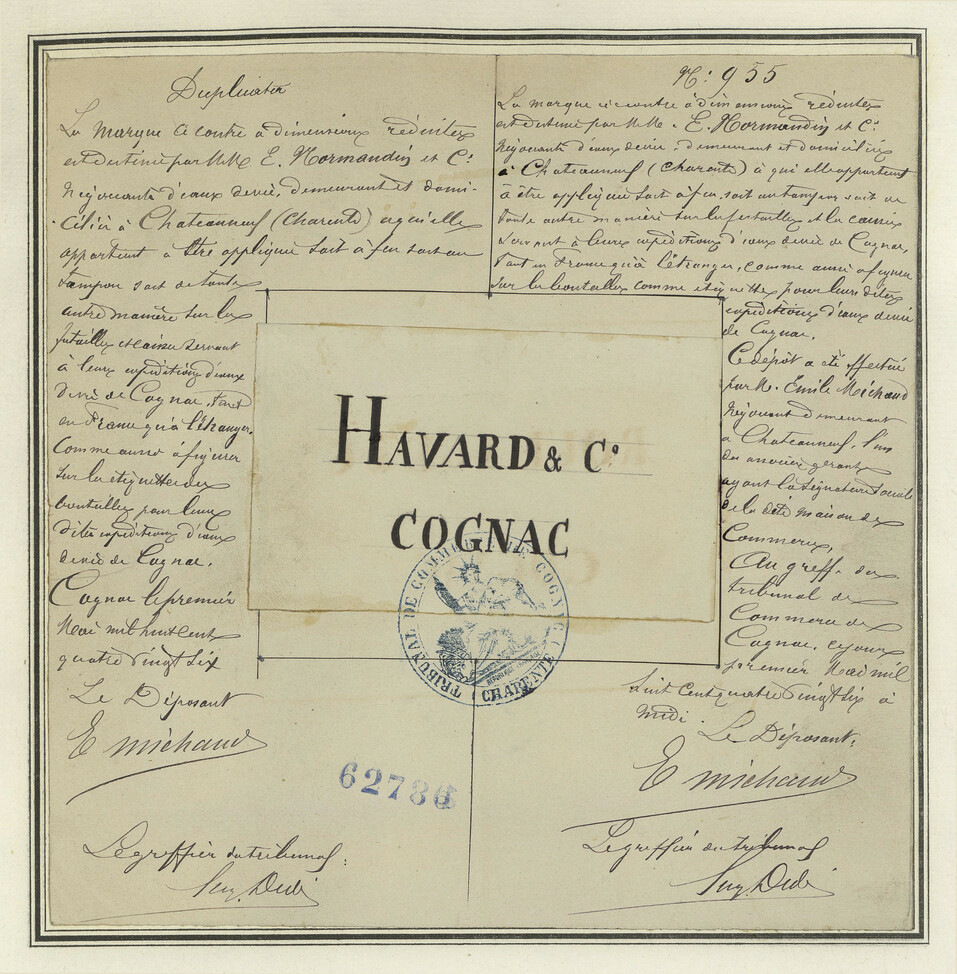 Duplicata
La marque ci contre à dimensions réduites
est destinée par MM. E. Normandin et Cie
Négociants d'eaux de vie, demeurant et domi-
ciliés à Chateauneuf (Charente) à qui elle
appartient à être appliquée soit à feu soit au
tampon soit de toute
autre manière sur les
futailles et caisses servant
à leurs expéditions d'eaux
de vie de Cognac, tant
en France qu'à l'étranger,
Comme aussi à figurer
sur les étiquettes des
bouteilles pour leurs
dites expéditions d'eaux
de vie de Cognac.
Cognac le premier
Mai mil huit cent
quatre vingt six
Le Déposant
E Michaud
Le greffier du tribunal :
N°: 955
La marque ci contre à dimensions réduites
est destinée par MM. E. Normandin et Cie
Négociants d'eaux de vie, demeurant et domiciliés
à Chateauneuf (Charente) à qui elle appartient
à être appliquée soit à feu, soit au tampon soit de
toute autre manière sur les futailles et les caisses
servant à leurs expéditions d'eaux de vie de Cognac,
tant en France qu'à l'étranger, comme aussi à figurer
sur les bouteilles comme étiquettes pour leurs dites
expéditions d'eaux de vie
de Cognac.
Ce dépôt a été effectué
par M. Emile Michaud
Négociant demeurant
à Chateauneuf, l'un
des associés gérants
ayant la signature sociale
de la dite maison de
Commerce,
Au greffe du
tribunal de
Commerce de
Cognac, ce jour
premier Mai mil
huit cent quatre vingt six à
midi.
Le Déposant :
E Michaud
Le greffier du tribunal
HAVARD & Co
COGNAC
TRIBUNAL DE COMMERCE DE COGNAC
CHARENTE
62786